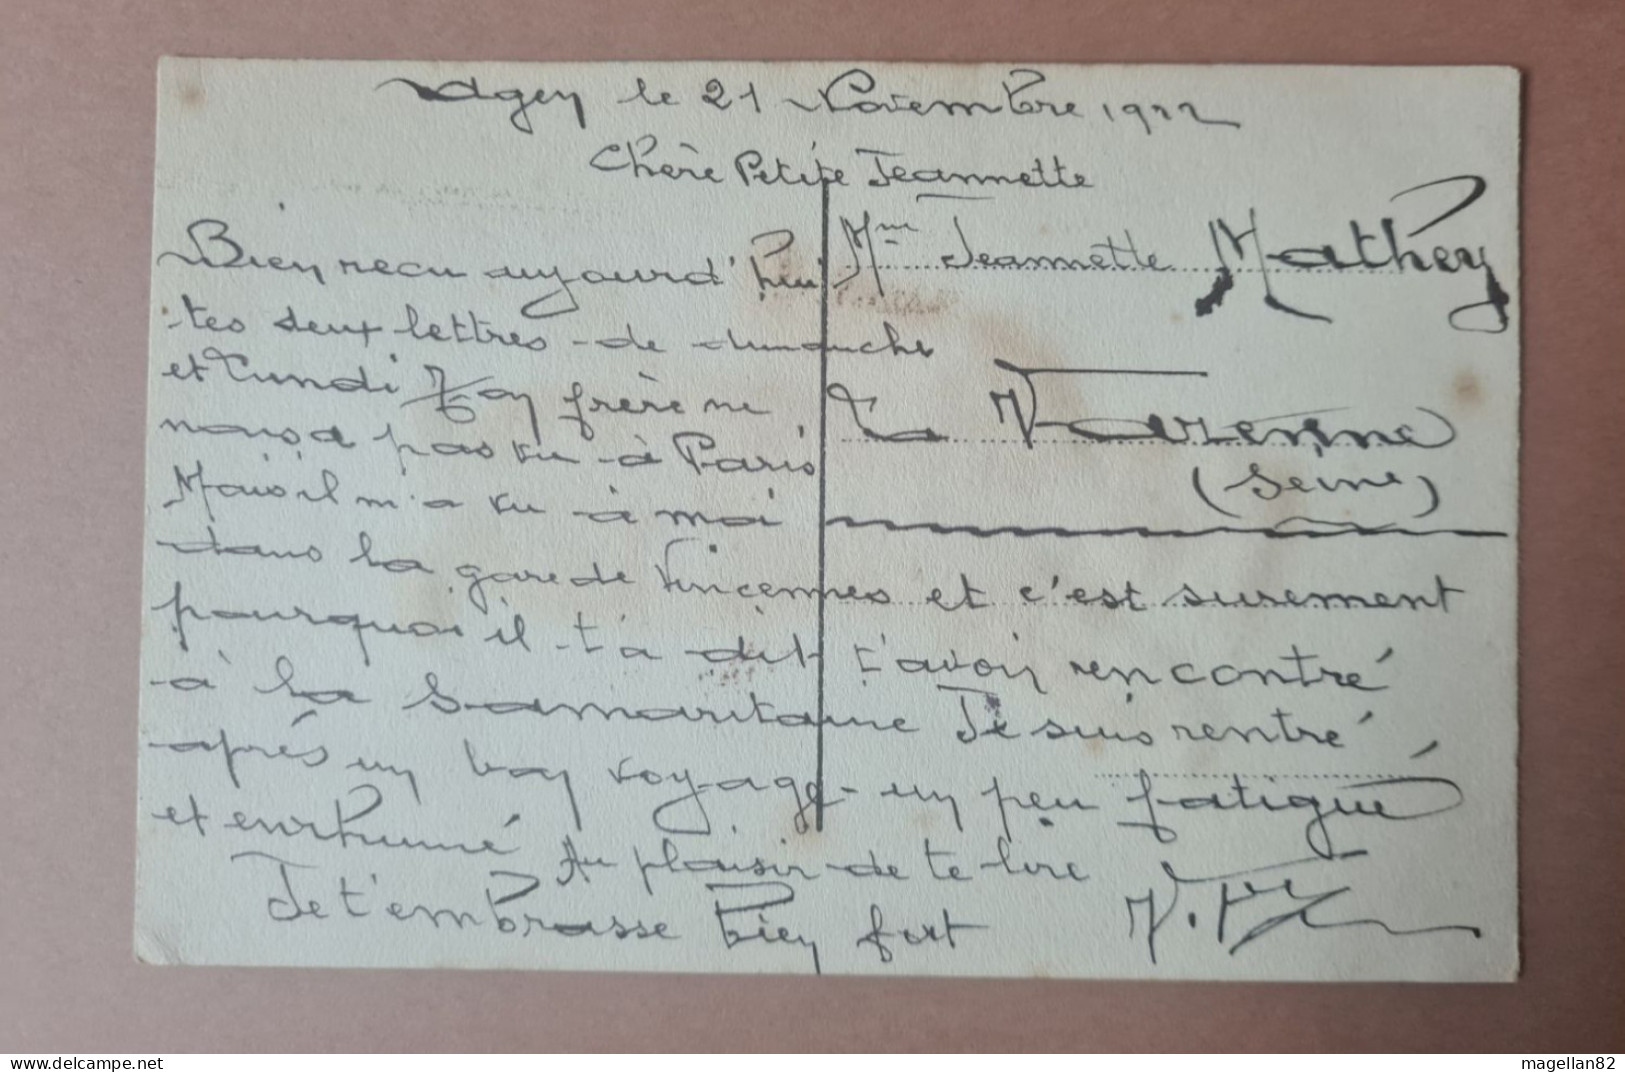 Agen le 21 Novembre 1922
Chère Petite Jeannette
Mme Jeannette Mathey
La Varenne
(Seine)
Bien recu aujourd'hui
tes deux lettres de dimanche
et Lundi Ton frère ne
nous a pas vu à Paris
Mais il m'a vu à moi
dans la gare de Vincennes et c'est surement
pourquoi il t'a dit t'avoir rencontré
à la Samaritaine Je suis rentré
après un bon voyage un peu fatigué
et enrhumé Au plaisir de te lire
Je t'embrasse bien fort
delcampe.net
magellan82